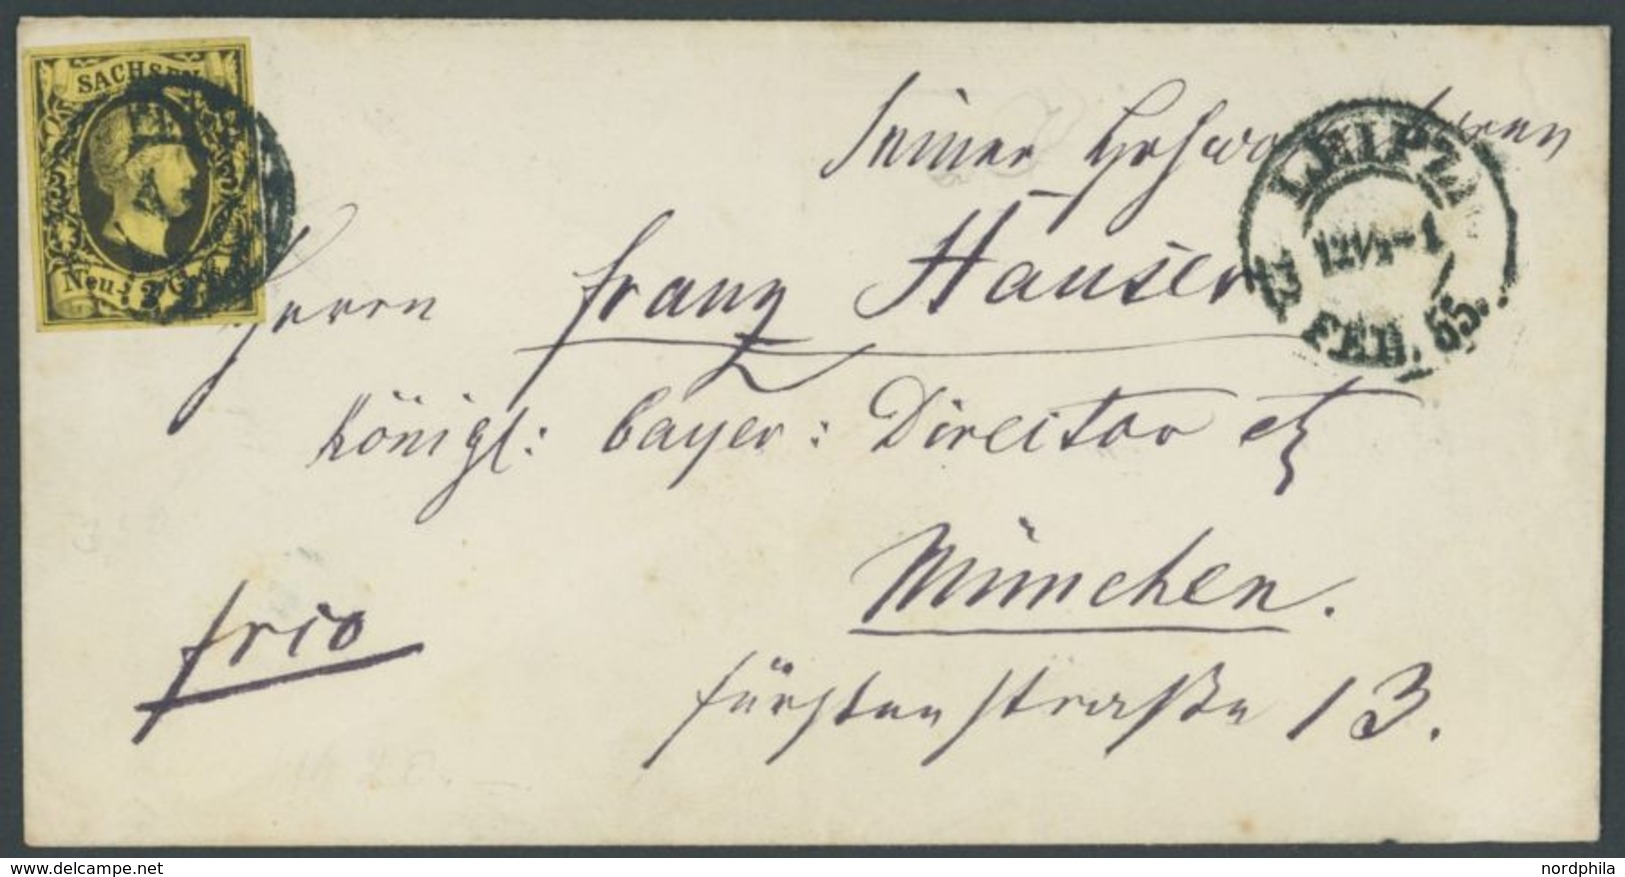 SACHSEN
Seiner Hochwohlgeboren
LEIPZIG
12½-1
22 FEB. 55.
Neu- 3 Grosch.
Herrn Franz Hauser
Königl: bayer: Director etz
München.
frco
Fürstenstraße 13.
www.delcampe.net
nordphila